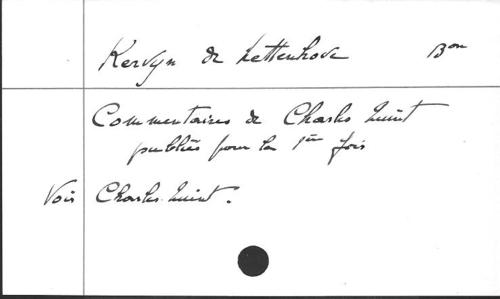 Kervyn de Lettenhove Bon
Commentaires de Charles Quint
publiés pour la 1ère fois
Voir Charles-Quint.